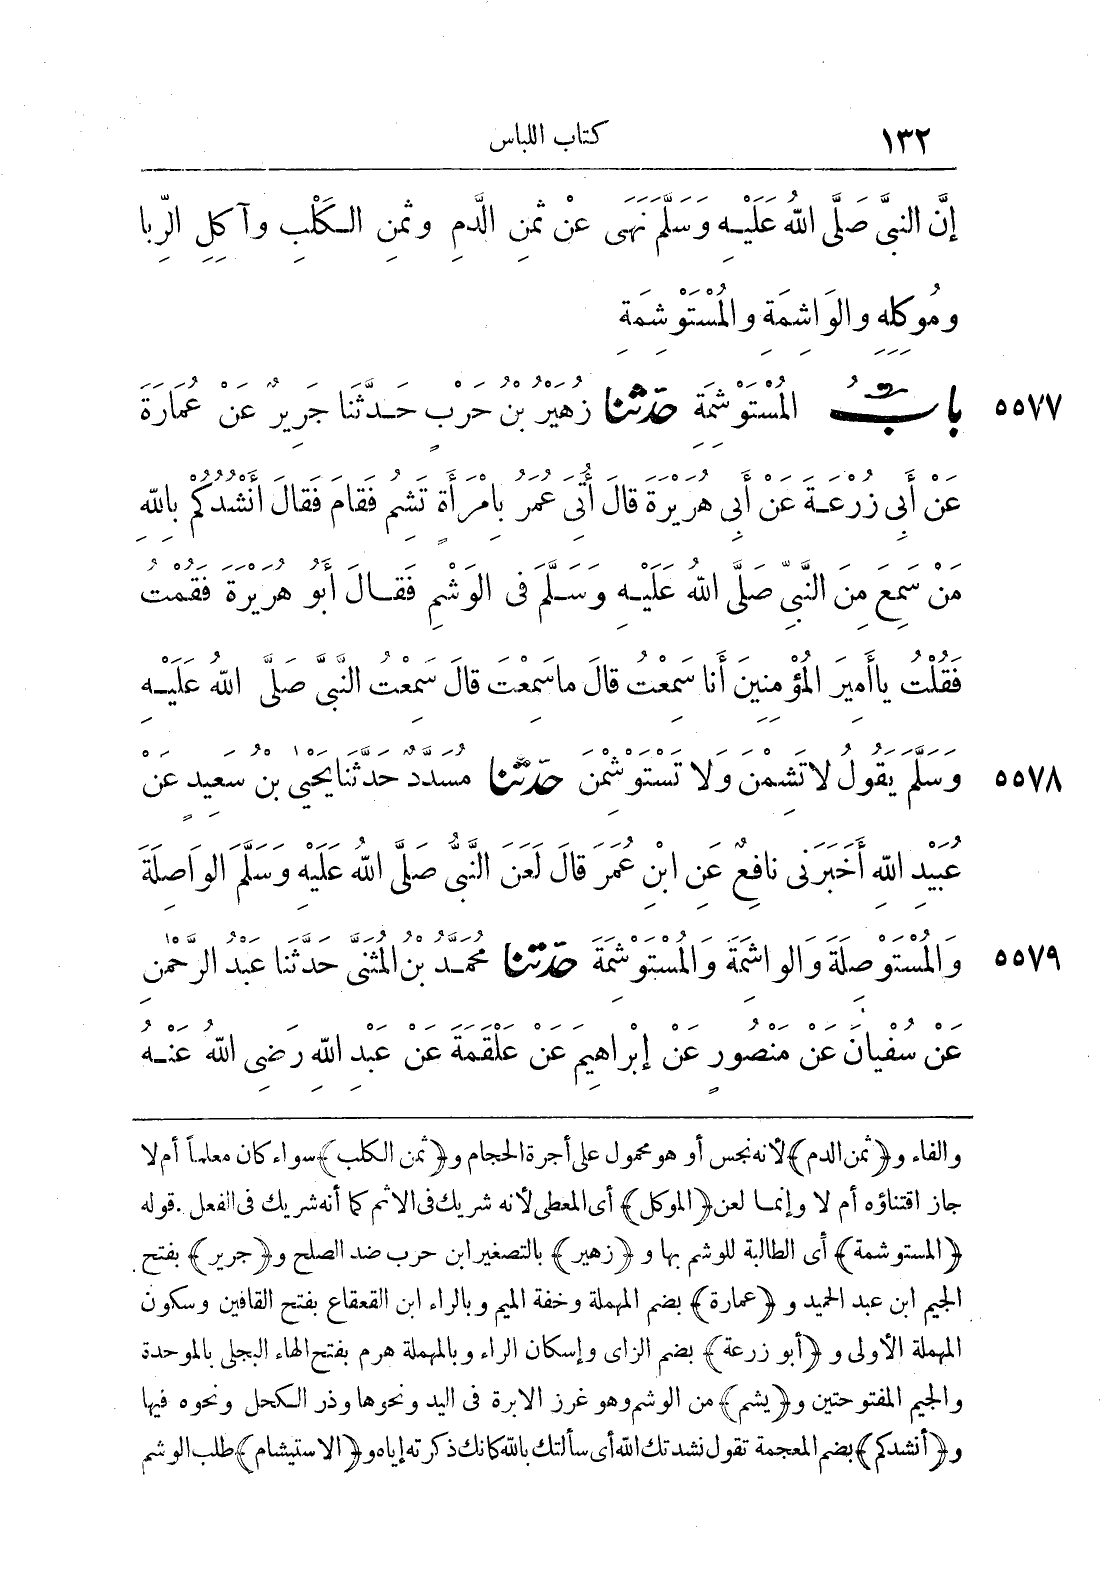 ١٣٢ كتاب اللباس
إِنَّ النبىَّ صَلَّى اللهُ عَلَيْهِ وَسَلَّمَ نَهَى عَنْ ثَمَنِ الَّدمِ وثمنِ الكَلْبِ وآكِلِ الرِّبا
ومُوكِلِهِ والوَاشِمَةِ والمُسْتَوْشِمَةِ
٥٥٧٧ بابُ المُسْتَوْشِمَةِ حَدَّثنا زُهَيْرُ بْنُ حَرْبٍ حَدَّثَنا جَرِيرٌ عَنْ عُمَارَةَ
عَنْ أَبِى زُرْعَةَ عَنْ أَبِى هُرَيْرَةَ قالَ أُتِىَ عُمَرُ بِامْرَأَةٍ تَشِمُ فَقامَ فَقَالَ أَنْشُدُكُمْ بِاللهِ
مَنْ سَمِعَ مِنَ النَّبِىِّ صَلَّى اللهُ عَلَيْهِ وَسَلَّمَ فى الوَشْمِ فَقَالَ أَبُو هُرَيْرَةَ فَقُمْتُ
فَقُلْتُ ياأَمِيرَ المُؤْمِنِينَ أَنا سَمِعْتُ قالَ ماسَمِعْتَ قالَ سَمِعْتُ النَّبىَّ صَلَّى اللهُ عَلَيْهِ
٥٥٧٨ وَسَلَّمَ يَقُولُ لاتَشِمْنَ وَلا تَسْتَوْشِمْنَ حَدَّثنا مُسَدَّدٌ حَدَّثَنا يَحْيٰى بْنُ سَعِيدٍ عَنْ
عُبَيْدِ اللهِ أَخْبَرَنِى نافِعٌ عَنِ ابْنِ عُمَرَ قالَ لَعَنَ النَّبىُّ صَلَّى اللهُ عَلَيْهِ وَسَلَّمَ الوَاصِلَةَ
٥٥٧٩ وَالمُسْتَوْصِلَةَ وَالوَاشِمَةَ وَالمُسْتَوْشِمَةَ حَدَّثنا مُحَمَّدُ بْنُ المُثَنَّى حَدَّثَنا عَبْدُ الرَّحْمٰنِ
عَنْ سُفْيانَ عَنْ مَنْصُورٍ عَنْ إِبْراهِيمَ عَنْ عَلْقَمَةَ عَنْ عَبْدِ اللهِ رَضِىَ اللهُ عَنْهُ
والفاء و﴿ثمن الدم﴾ لأنه نجس أو هو محمول على أجرة الحجام و﴿ثمن الكلب﴾ سواء كان معلماً أم لا
جاز اقتناؤه أم لا وإنما لعن ﴿الموكل﴾ أى المعطى لأنه شريك فى الاثم كما أنه شريك فى الفعل. قوله
﴿المستوشمة﴾ أى الطالبة للوشم بها و ﴿زهير﴾ بالتصغير ابن حرب ضد الصلح و﴿جرير﴾ بفتح
الجيم ابن عبد الحميد و ﴿عمارة﴾ بضم المهملة وخفة الميم وبالراء ابن القعقاع بفتح القافين وسكون
المهملة الأولى و ﴿أبو زرعة﴾ بضم الزاى وإسكان الراء وبالمهملة هرم بفتح الهاء البجلى بالموحدة
والجيم المفتوحتين و﴿يشم﴾ من الوشم وهو غرز الابرة فى اليد ونحوها وذر الكحل ونحوه فيها
و﴿أنشدكم﴾ بضم المعجمة تقول نشدتك الله أى سألتك بالله كانك ذكرته إياه و﴿الاستيشام﴾ طلب الوشم